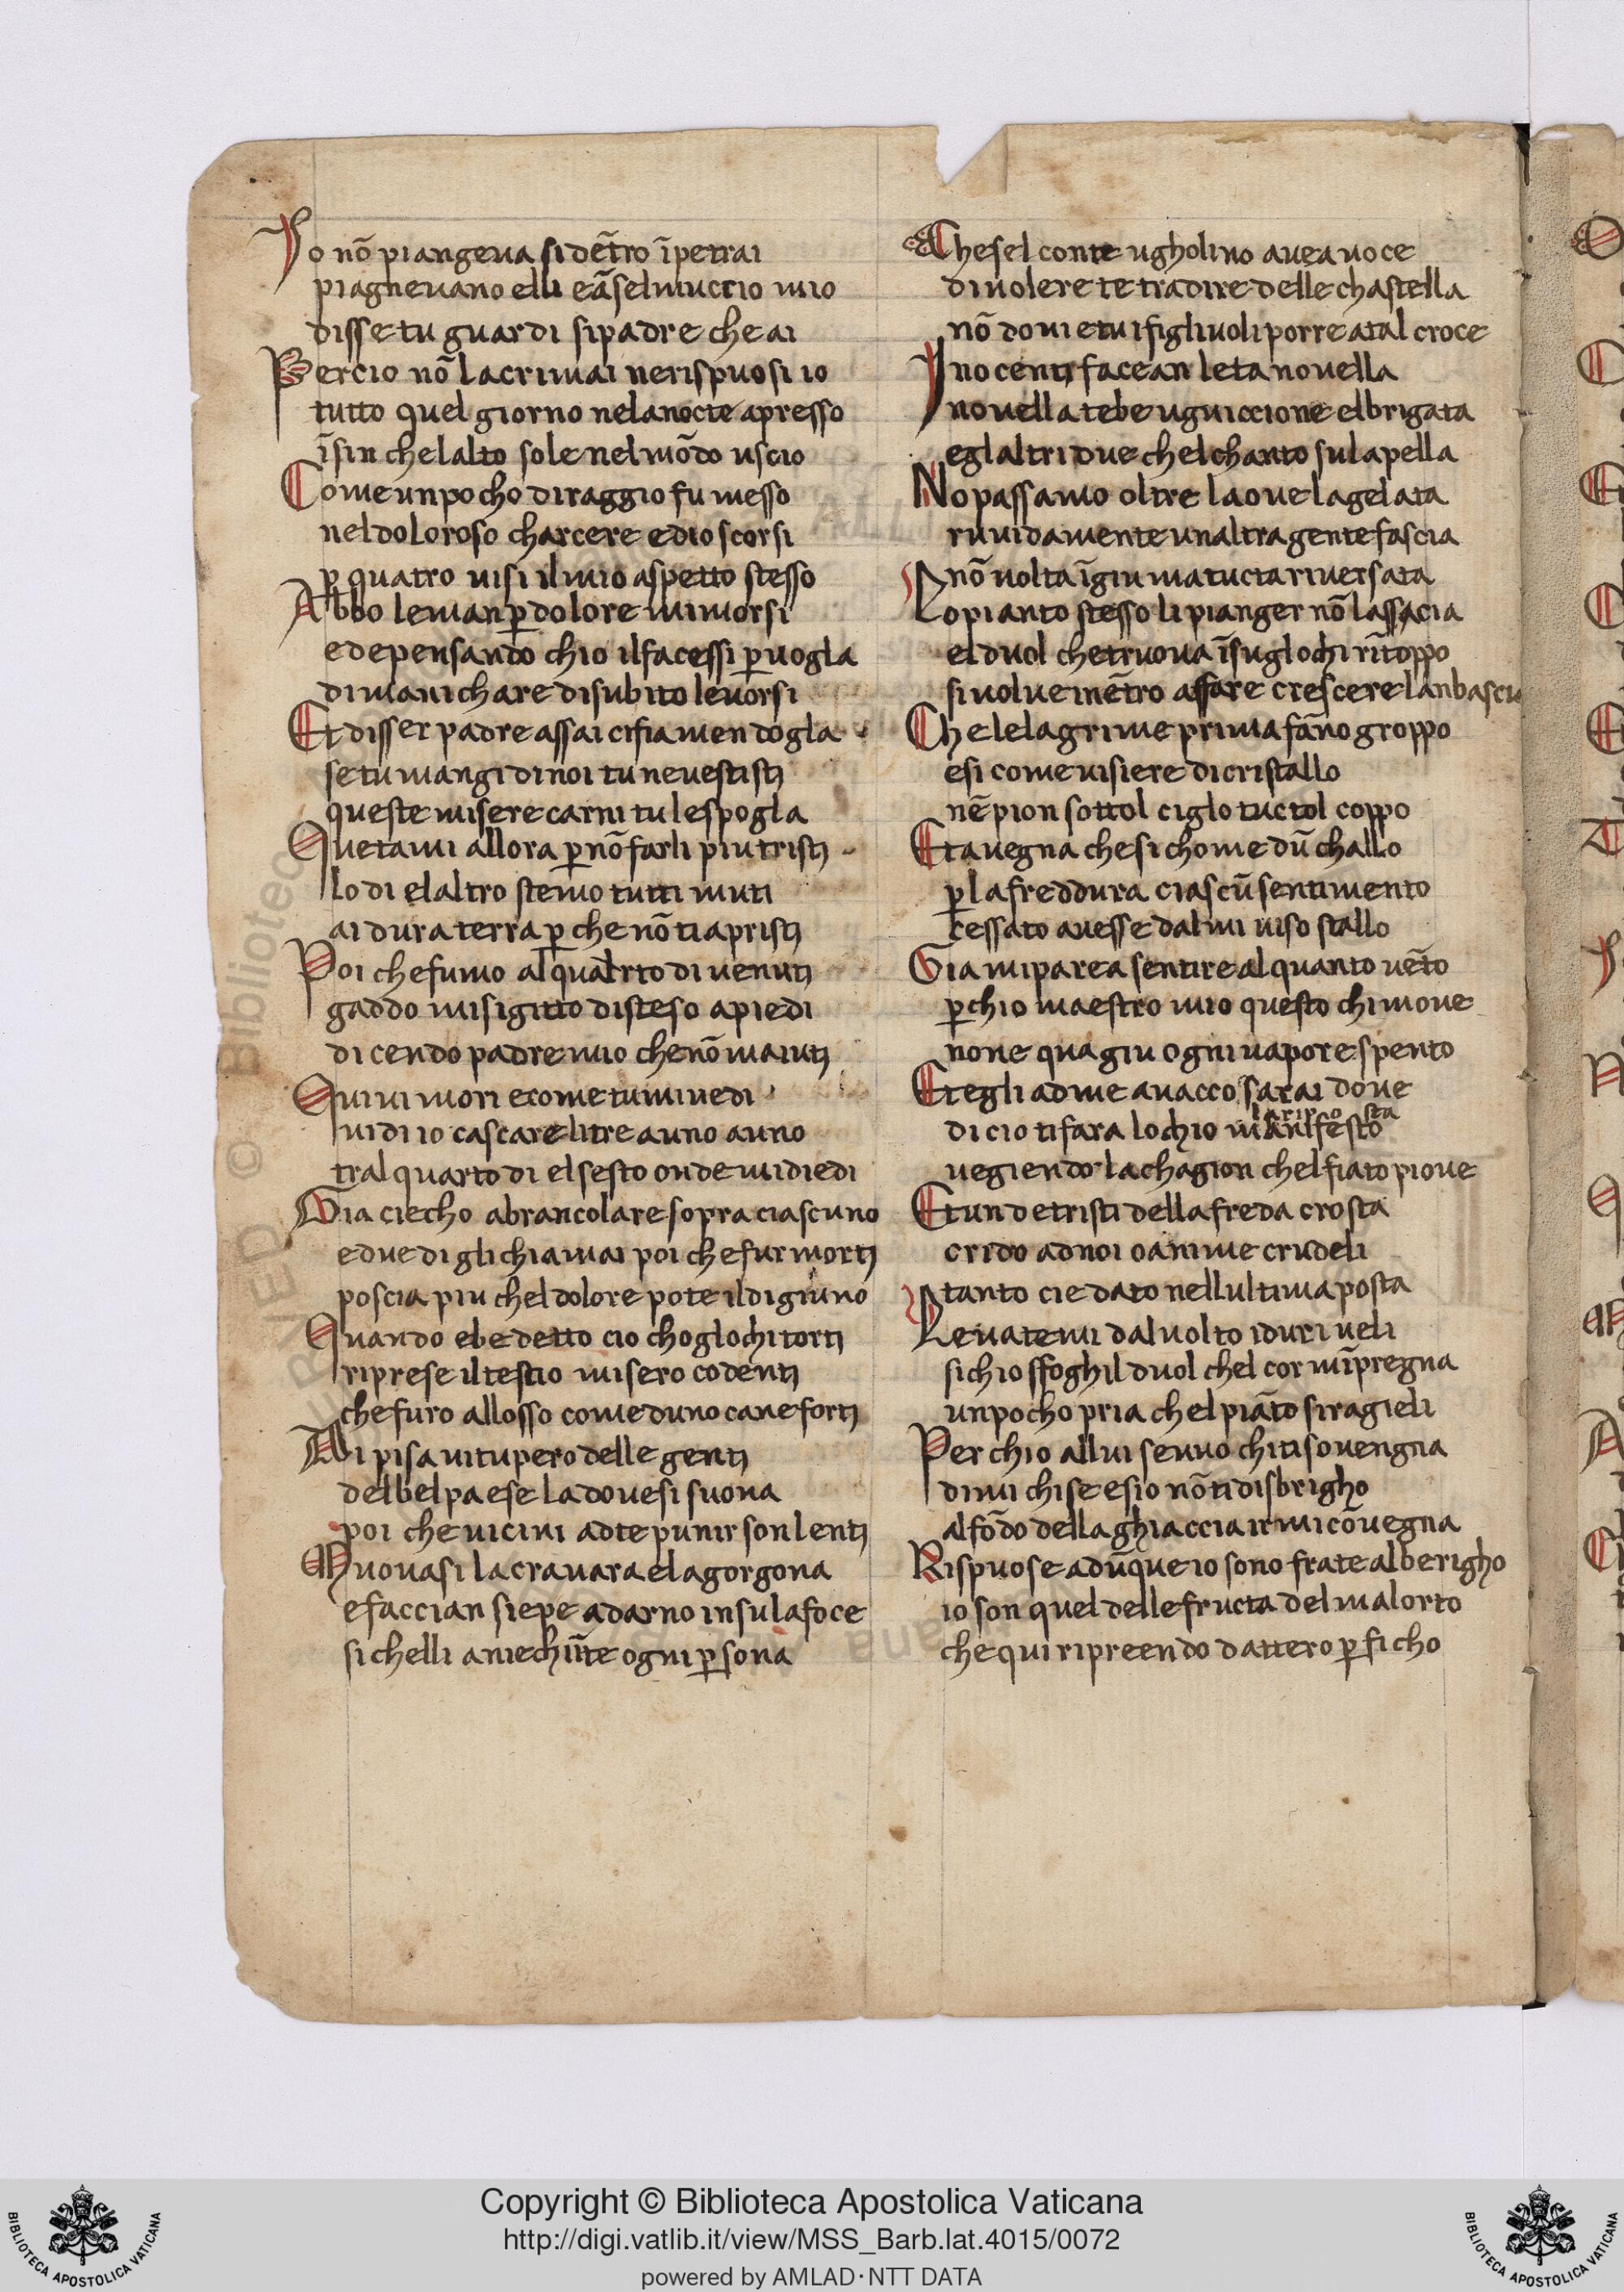 Yo nō piangeua si dētro īpetrai
piagneuano elli e āselmuccio mio
disse tu guardi si padre che ai
Percio nō lacrimai ne rispuosi io
tutto quel giorno ne la nocte apresso
īsin che laltro sole nel mōdo uscio
Come un pocho di raggio fu messo
nel doloroso charcere ed io scorsi
p̄ quatro uisi il mio aspetto stesso
Abbo le man p̄ dolore mi morsi
ed e pensando chio il facessi p̄ uogla
di manichare di subito leuorsi
Et disser padre assai ci fia men dogla
se tu mangi di noi tu ne uestisti
queste misere carni tu le spogla
Quetami allora p̄ nō farli piu tristi
lo di e laltro stemo tutti muti
ai dura terra p̄ che nō ti apristi
Poi che fumo al quarto di uenuti
gaddo mi si gitto disteso a piedi
dicendo padre mio che nō maiuti
Quiui mori e come tu mi uedi
uid io cascare li tre a uno a uno
tral quarto di el sesto onde mi diedi
Gia ciecho a brancolare sopra ciascuno
e due di gli chiamai poi che fur morti
poscia piu chel dolore pote il digiuno
Quando ebe detto cio cho gl ochi torti
riprese il teschio misero co denti
che furo allosso come duno cane forti
Ai pisa uitupero delle genti
del bel paese la doue si suona
poi che uicini ad te punir son lenti
Muouasi la cravara e la gorgona
e faccian siepe ad arno in su la foce
si chelli aniechi īte ogni p̄sona
Che sel conte ugholino auea uoce
di uolere te tradire delle chastella
nō doui e tu i figliuoli porre a tal croce
Ynocenti facean leta nouella
nouella tebe uguiccione el brigata
e gl altri due chel chanto su lapella
No passamo oltre la oue la gelata
ruuidamente unaltra gente fascia
nō uolta īgiu ma tucta riuersata
Lo pianto stesso li pianger nō lassa cia
el duol che truoua īsu gl ochi rītoppo
si uolue inētro affare crescere lanbascia
Che le lagrime prima fāno groppo
e si come uisiere di cristallo
nēpion sottol ciglo tuctol coppo
Et auegna che si chome dū challo
p̄ la freddura ciascū sentimento
cessato auesse dal mi uiso stallo
Gia mi parea sentire alquanto uēto
p̄ chio maestro mio questo chi moue
none qua giu ogni uapore spento
Et egli ad me auacco sarai doue
di cio ti fara lochio manifesto la ripo sta
uegiendo la chagion chel fiato pioue
Et un de tristi della freda crosta
crido ad noi o anime crudeli
tanto cie dato nellultima posta
Leuatemi dal uolto i duri ueli
si chio sfoghil duol chel cor mīpregna
un pocho pria chel piāto si ragieli
Per chio allui se uuo chi ti souengna
dimi chi se e sio nō ti disbrigho
al fōdo della ghiaccia ir mi cōuegna
Rispuose adūque io sono frate alberigho
io son quel delle fructa del mal orto
che qui ripreendo dattero p̄ ficho
Copyright © Biblioteca Apostolica Vaticana
http://digi.vatlib.it/view/MSS_Barb.lat.4015/0072
powered by AMLAD·NTT DATA
BIBLIOTECA APOSTOLICA VATICANA
BIBLIOTECA APOSTOLICA VATICANA